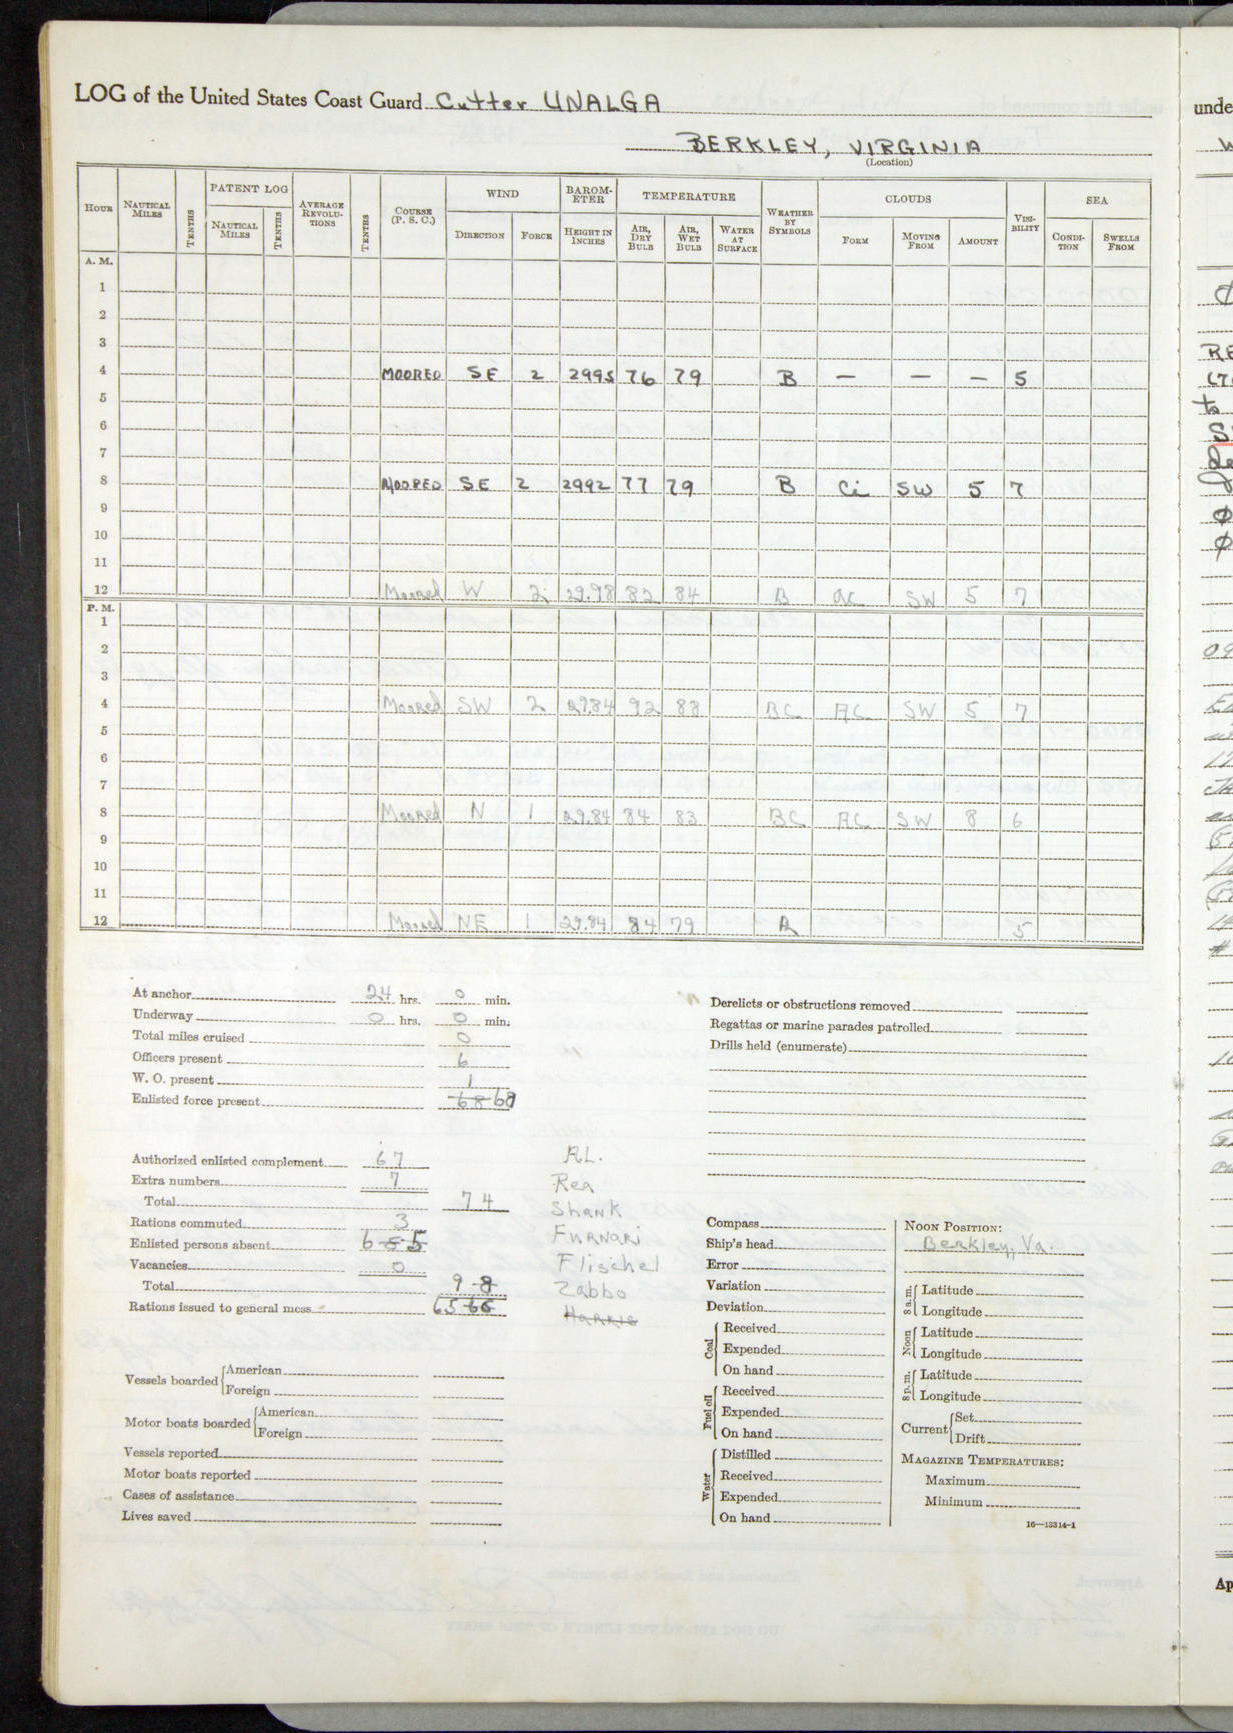 LOG of the United States Coast Guard Cutter UNALGA
BERKLEY, VIRGINIA
(Location)
HOUR NAUTICAL MILES TENTHS PATENT LOG NAUTICAL MILES TENTHS AVERAGE REVOLUTIONS TENTHS COURSE (P. S. C.) WIND DIRECTION FORCE BAROMETER HEIGHT IN INCHES TEMPERATURE AIR, DRY BULB AIR, WET BULB WATER AT SURFACE WEATHER BY SYMBOLS CLOUDS FORM MOVING FROM AMOUNT VISIBILITY SEA CONDITION SWELLS FROM
A. M.
1
2
3
4 MOORED SE 2 2995 76 79 B — — — 5
5
6
7
8 MOORED SE 2 2992 77 79 B Ci SW 5 7
9
10
11
12 Moored W 2 29.98 82 84 B AC SW 5 7
P. M.
1
2
3
4 Moored SW 2 29.84 92 88 BC AC SW 5 7
5
6
7
8 Moored N 1 29.84 84 83 BC AC SW 8 6
9
10
11
12 Moored NE 1 29.84 84 79 B 5
At anchor 24 hrs. 0 min.
Underway 0 hrs. 0 min.
Total miles cruised 0
Officers present 6
W. O. present 1
Enlisted force present 68
Authorized enlisted complement 67
Extra numbers 7
Total 74
Rations commuted 3
Enlisted persons absent 6
Vacancies 0
Total 9 8
Rations issued to general mess 65 66
AL.
Rea
Shank
Furnari
Flischel
Zabbo
Harris
Vessels boarded American
Foreign
Motor boats boarded American
Foreign
Vessels reported
Motor boats reported
Cases of assistance
Lives saved
Derelicts or obstructions removed
Regattas or marine parades patrolled
Drills held (enumerate)
Compass
Ship's head
Error
Variation
Deviation
Coal Received
Expended
On hand
Fuel oil Received
Expended
On hand
Water Distilled
Received
Expended
On hand
NOON POSITION:
Berkley, Va.
8 a.m. Latitude
Longitude
Noon Latitude
Longitude
8 p.m. Latitude
Longitude
Current Set
Drift
MAGAZINE TEMPERATURES:
Maximum
Minimum
16—13314-1